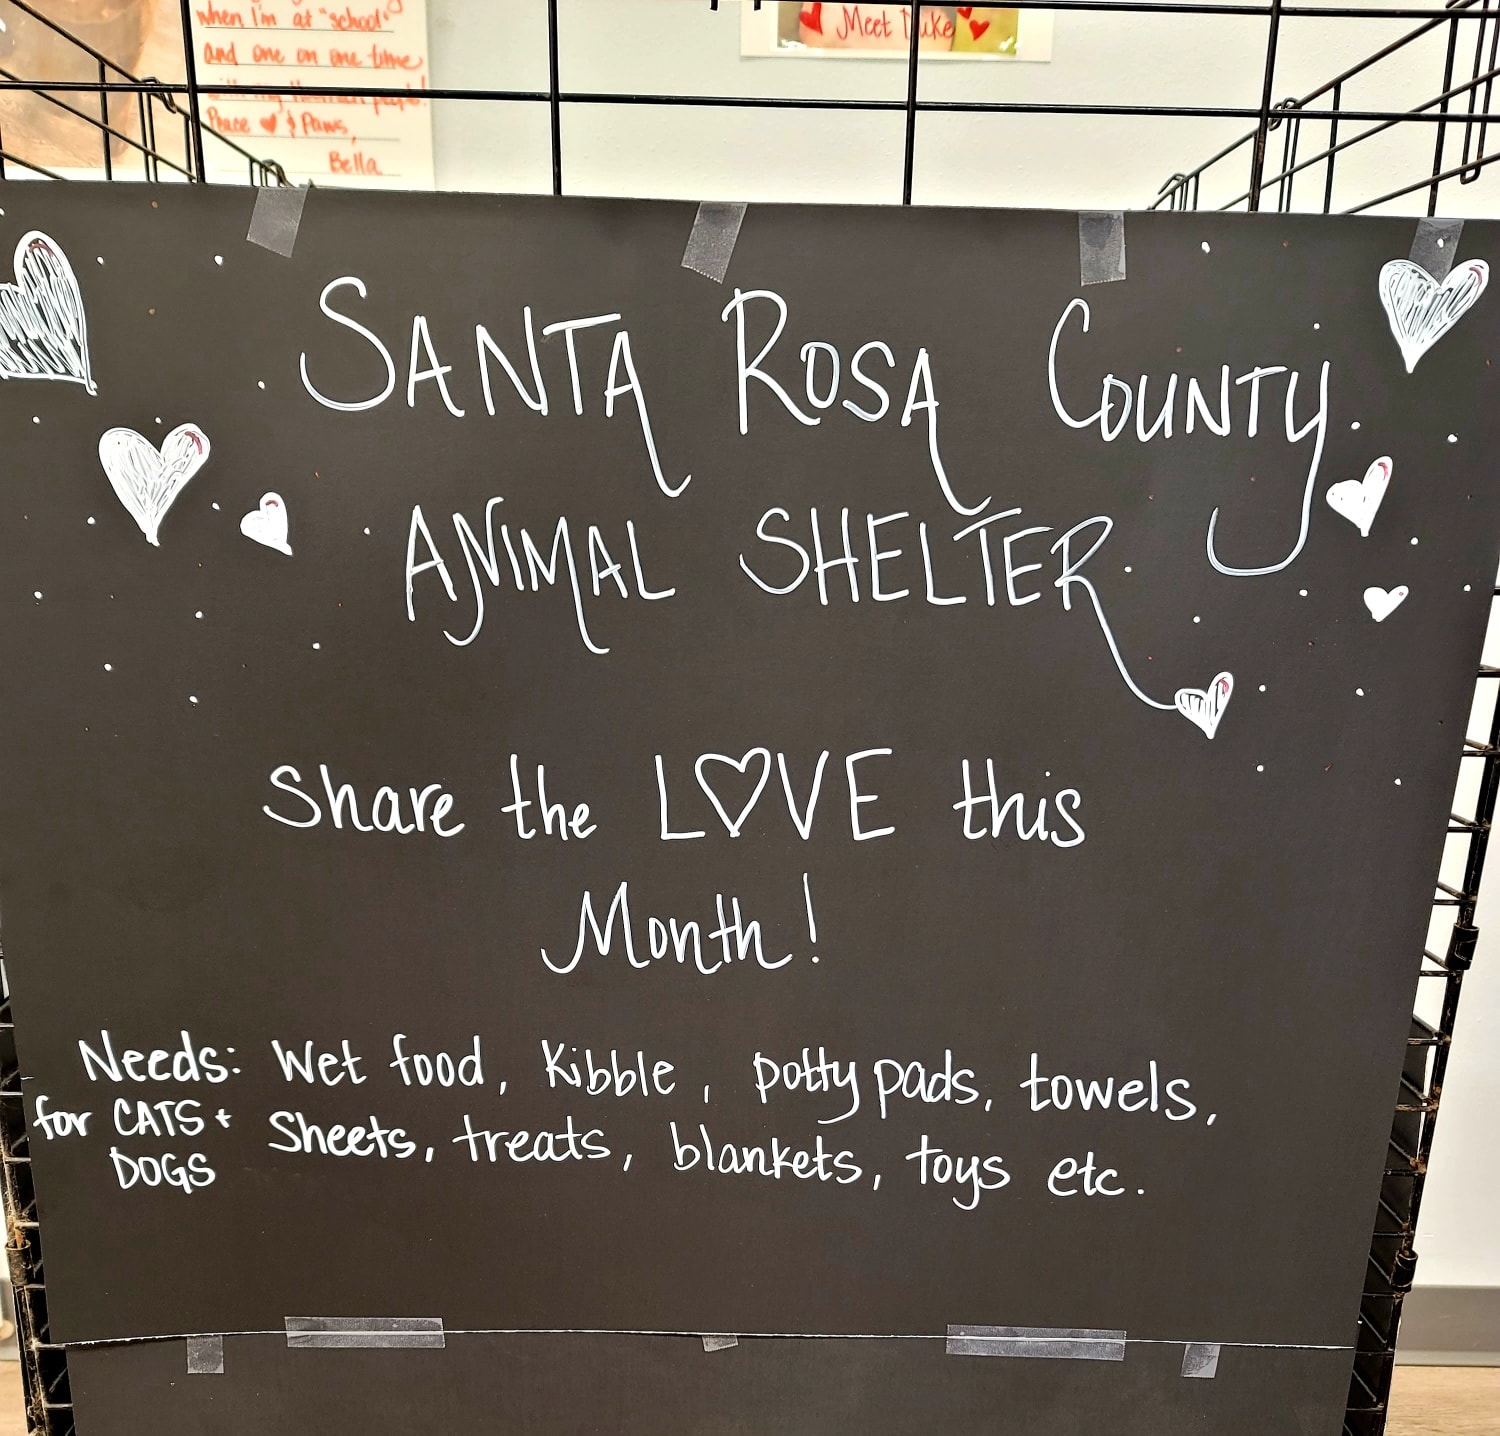 when I'm at "school"
and one on one time
with my human people!
Peace ♥ & Paws,
Bella
Meet Duke
SANTA ROSA COUNTY
ANIMAL SHELTER
Share the LOVE this
Month!
Needs: Wet food, Kibble, potty pads, towels,
for CATS + DOGS Sheets, treats, blankets, toys etc.